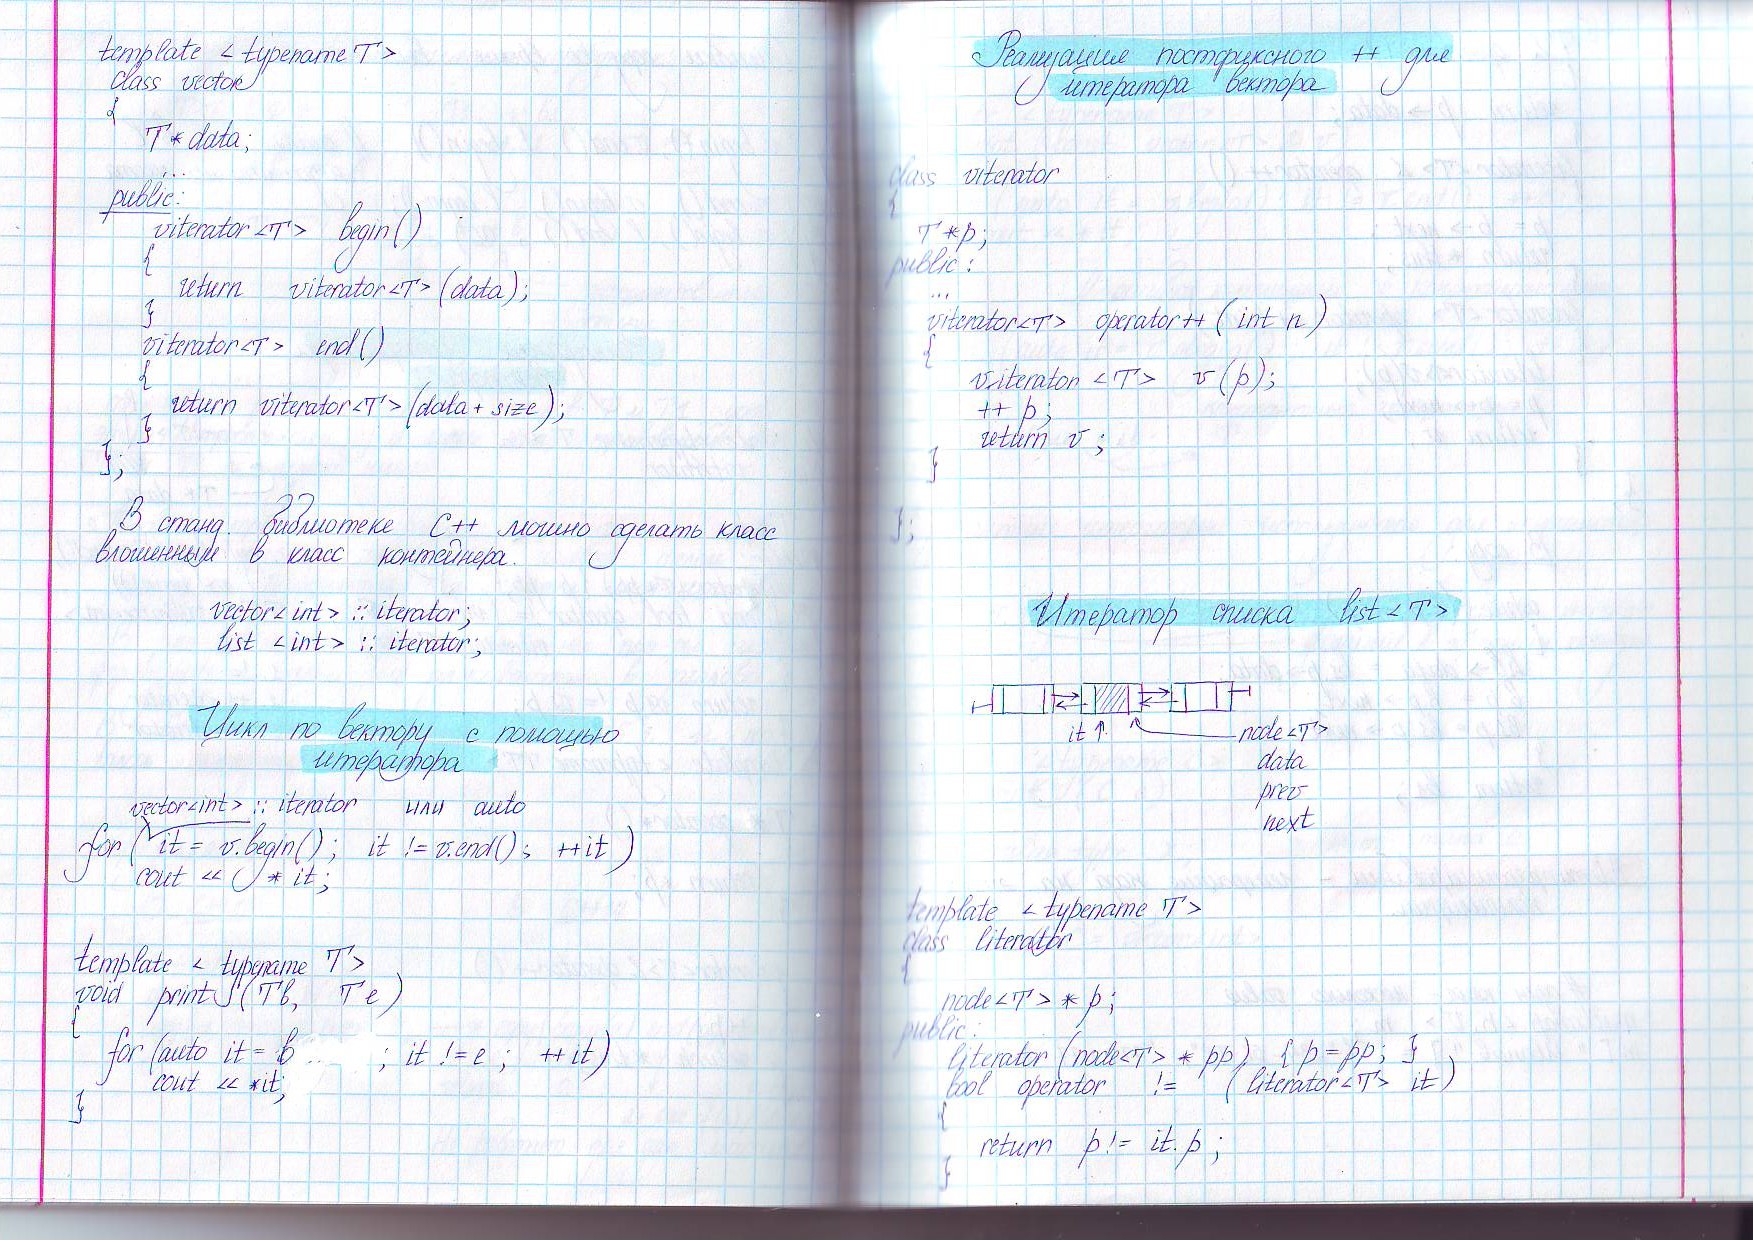 template < typename T >
class vector
{
T * data;
...
public:
viterator<T> begin()
{
return viterator<T> (data);
}
viterator<T> end()
{
return viterator<T> (data + size);
}
};
В станд. библиотеке C++ можно сделать класс
вложенным в класс контейнера.
vector<int> :: iterator;
list <int> :: iterator;
Цикл по вектору с помощью
итератора
vector<int> :: iterator или auto
for ( it = v.begin(); it != v.end(); ++it )
cout << * it;
template < typename T >
void print (T b, T e)
{
for (auto it = b ; it != e ; ++it)
cout << *it;
}
Реализация постфиксного ++ для
итератора вектора
class viterator
{
T * p;
public:
...
viterator<T> operator++ ( int n )
{
viterator <T> v (p);
++ p;
return v ;
}
};
Итератор списка list<T>
it node<T>
data
prev
next
template < typename T >
class literator
{
node<T> * p;
public:
literator (node<T> * pp) { p = pp; }
bool operator != ( literator<T> it )
{
return p != it.p ;
}